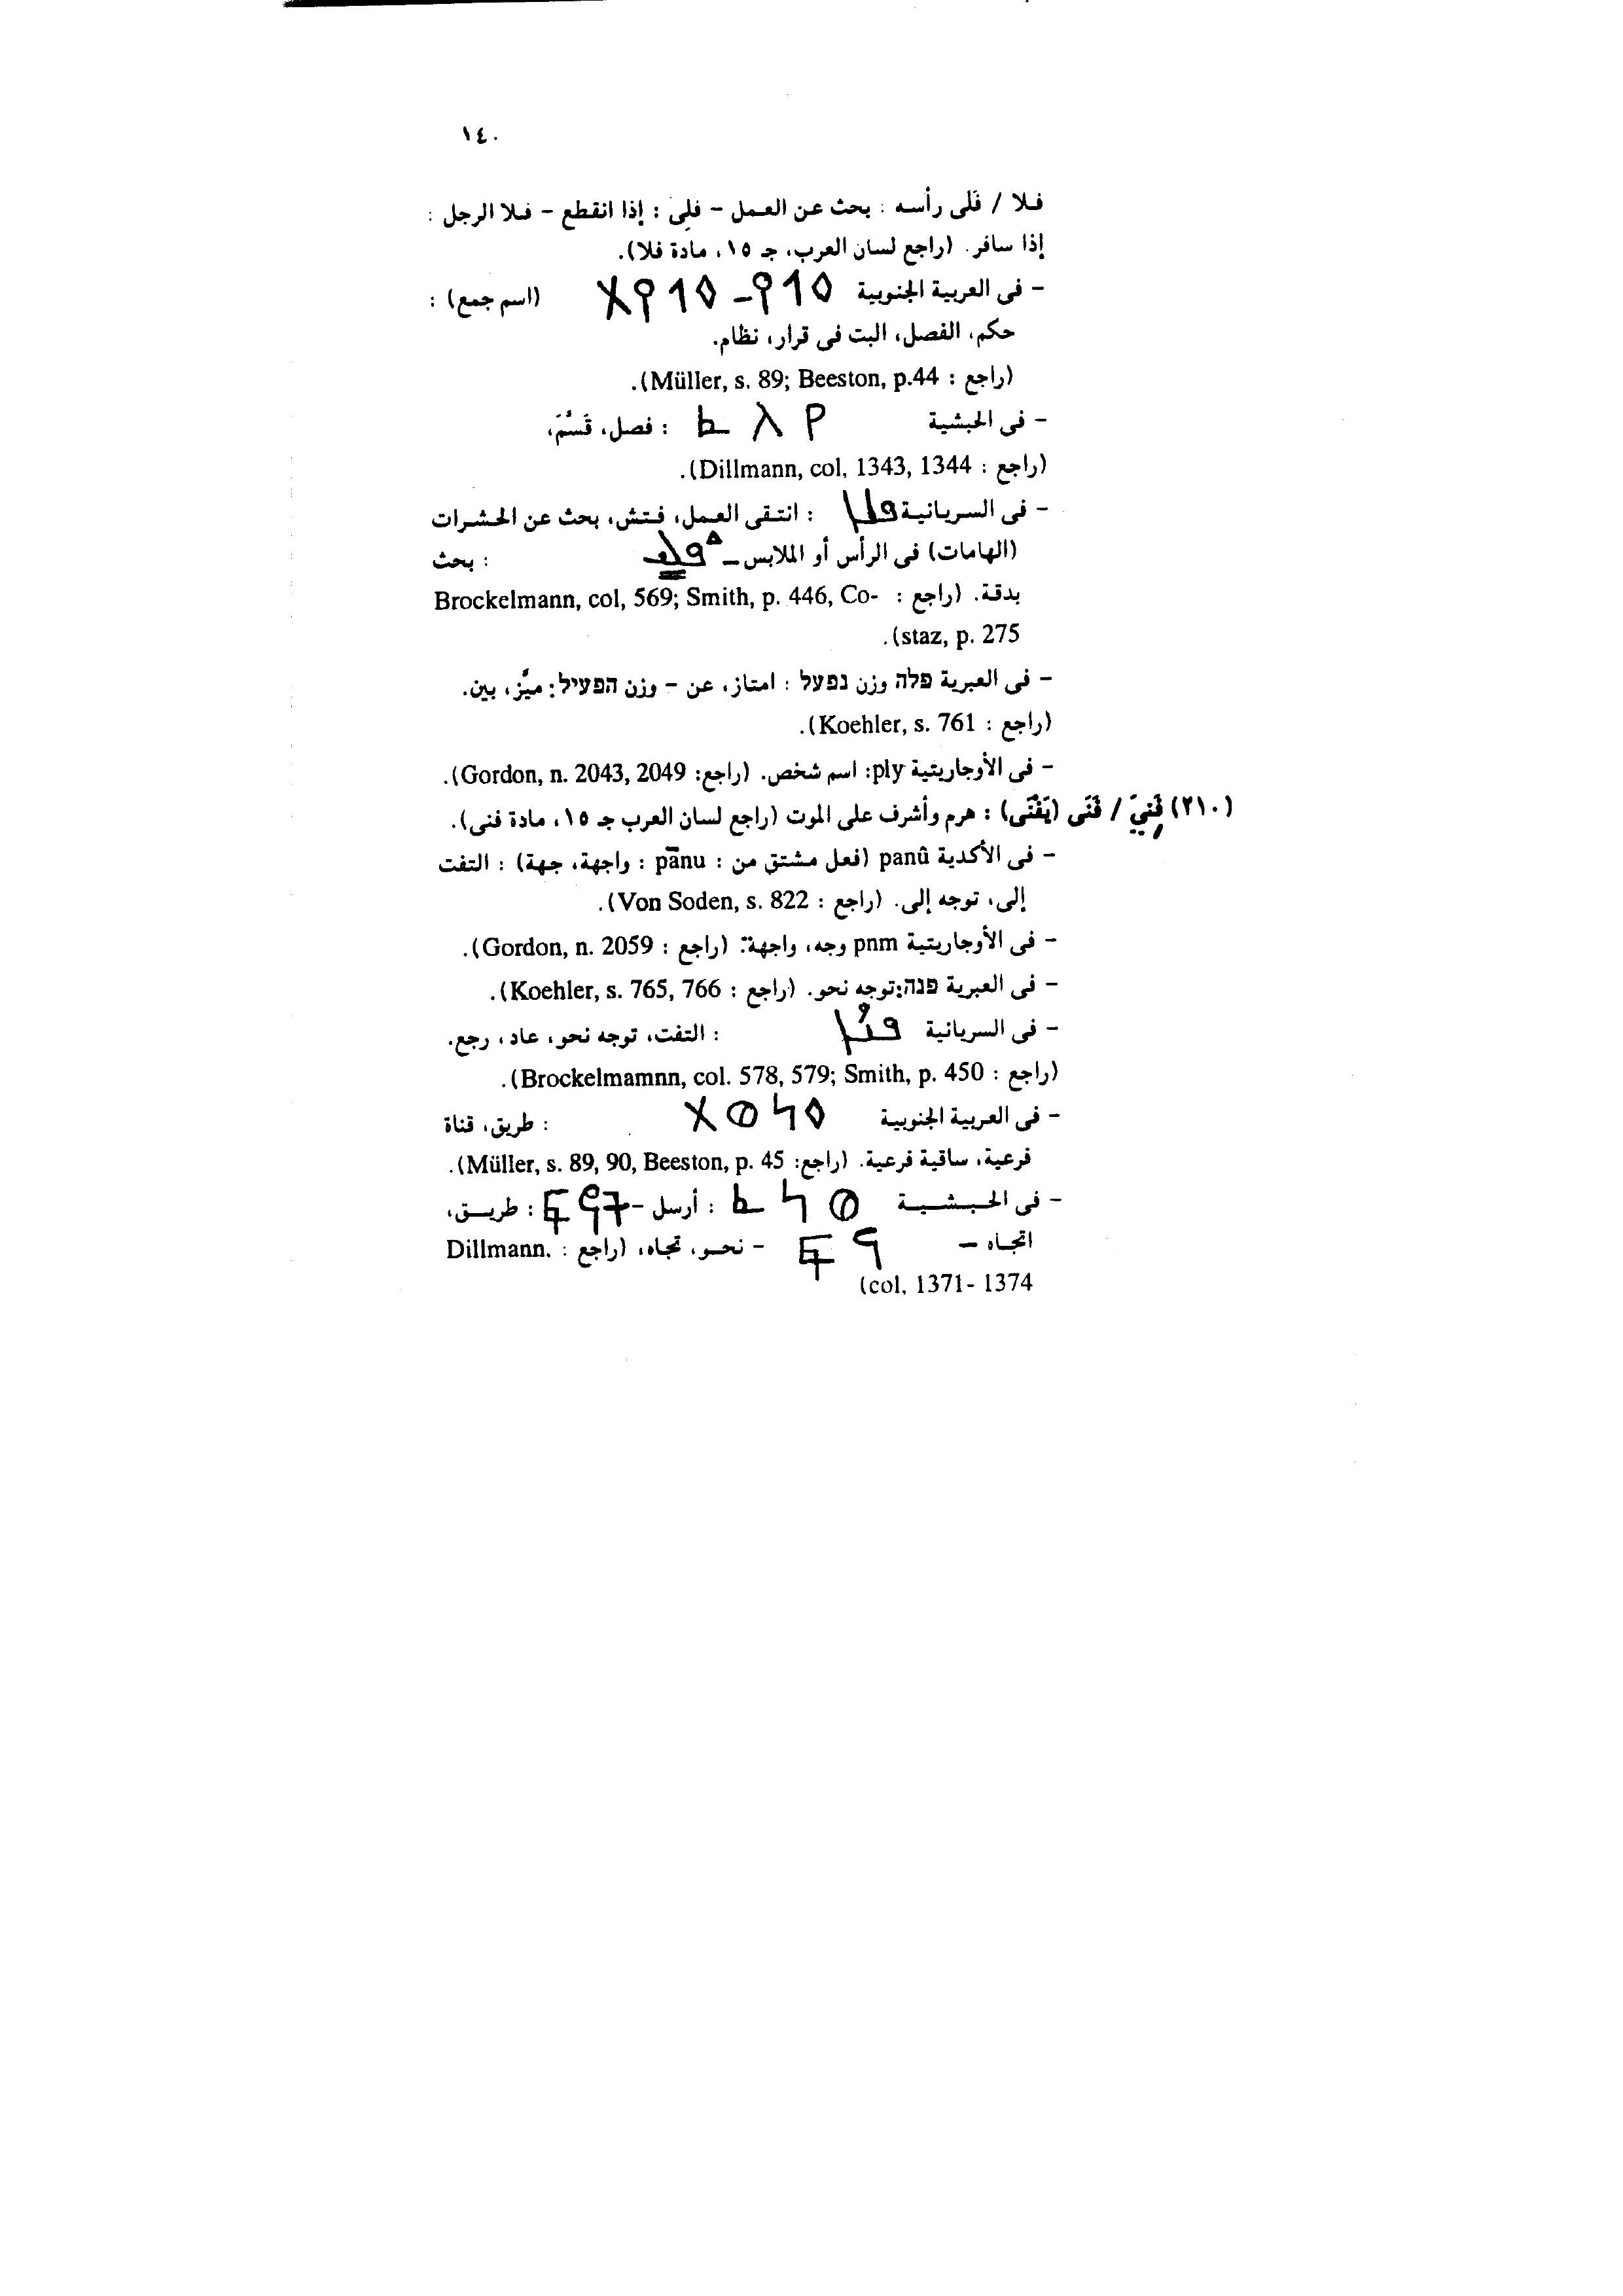 ١٤٠
فلا / فَلى رأسه : بحث عن العمل – فلِىَ : إذا انقطع – فلا الرجل :
إذا سافر. (راجع لسان العرب، جـ ١٥، مادة فلا).
– فى العربية الجنوبية 𐩰𐩡𐩺 – 𐩰𐩡𐩺𐩩 (اسم جمع) :
حكم، الفصل، البت فى قرار، نظام.
(راجع : Müller, s. 89; Beeston, p.44).
– فى الحبشية : فصل، قَسَّمَ،
(راجع : Dillmann, col, 1343, 1344).
– فى السريانية ܦܠܐ : انتقى العمل، فتش، بحث عن الحشرات
(الهامات) فى الرأس أو الملابس – : بحث
بدقة. (راجع : Brockelmann, col, 569; Smith, p. 446, Co-
staz, p. 275).
– فى العبرية פלה وزن נפעל : امتاز، عن – وزن הפעיל: ميَّز، بين.
(راجع : Koehler, s. 761).
– فى الأوجاريتية ply: اسم شخص. (راجع: Gordon, n. 2043, 2049).
(٢١٠) فَنِيَ / فَنَى (يَفْنَى) : هرم وأشرف على الموت (راجع لسان العرب جـ ١٥، مادة فنى).
– فى الأكدية panû (فعل مشتق من : pānu : واجهة، جهة) : التفت
إلى، توجه إلى. (راجع : Von Soden, s. 822).
– فى الأوجاريتية pnm وجه، واجهة. (راجع : Gordon, n. 2059).
– فى العبرية פנה: توجه نحو. (راجع : Koehler, s. 765, 766).
– فى السريانية ܦܢܐ : التفت، توجه نحو، عاد، رجع.
(راجع : Brockelmamnn, col. 578, 579; Smith, p. 450).
– فى العربية الجنوبية 𐩰𐩬𐩥𐩩 : طريق، قناة
فرعية، ساقية فرعية. (راجع: Müller, s. 89, 90, Beeston, p. 45).
– فى الحبشية : أرسل – : طريق،
اتجاه – – نحو، تجاه، (راجع : Dillmann.
col, 1371- 1374)